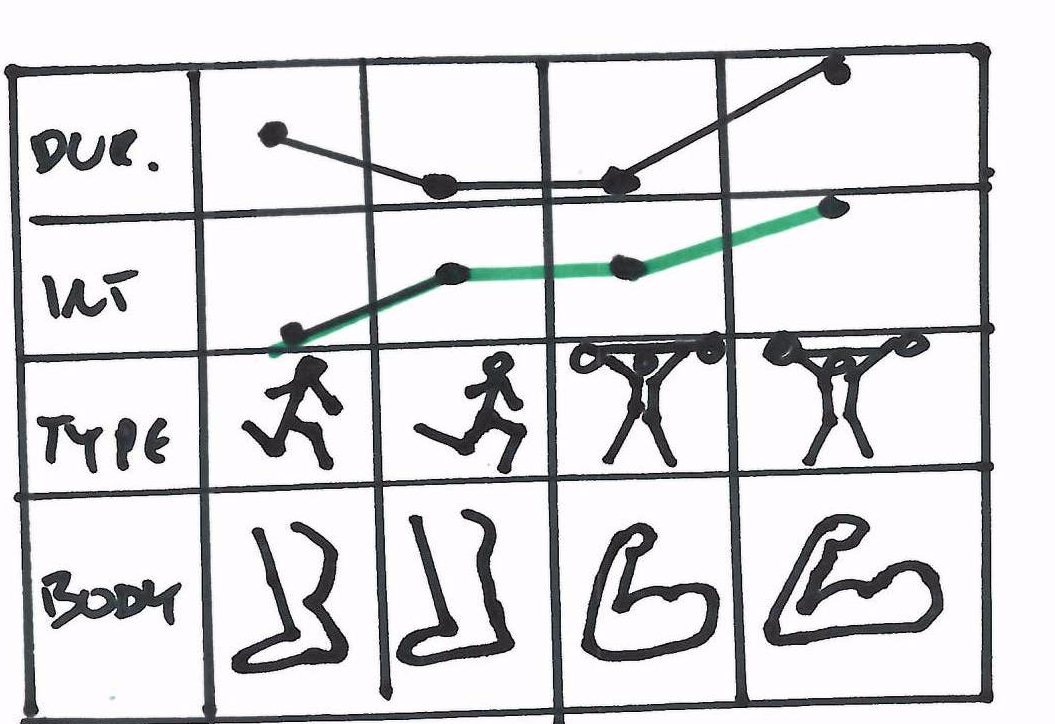 DUR.
INT
TYPE
BODY